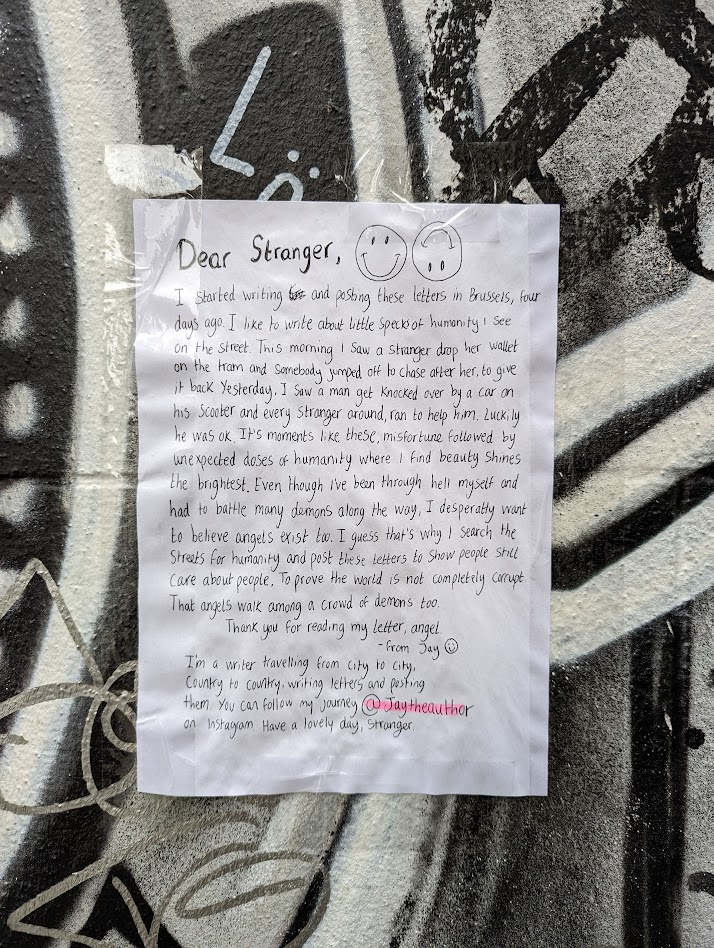 Dear Stranger,
I started writing and posting these letters in Brussels, four
days ago. I like to write about little specks of humanity I see
on the street. This morning I saw a stranger drop her wallet
on the tram and somebody jumped off to chase after her, to give
it back. Yesterday, I saw a man get knocked over by a car on
his scooter and every stranger around, ran to help him. Luckily
he was ok. It's moments like these, misfortune followed by
unexpected doses of humanity where I find beauty shines
the brightest. Even though I've been through hell myself and
had to battle many demons along the way, I desperatly want
to believe angels exist too. I guess that's why I search the
streets for humanity and post these letters to show people still
care about people. To prove the world is not completely corrupt.
That angels walk among a crowd of demons too.
Thank you for reading my letter, angel.
-from Jay
I'm a writer travelling from city to city,
Country to country, writing letters and posting
them. You can follow my journey @Jaytheauthor
on Instagram. Have a lovely day, Stranger.